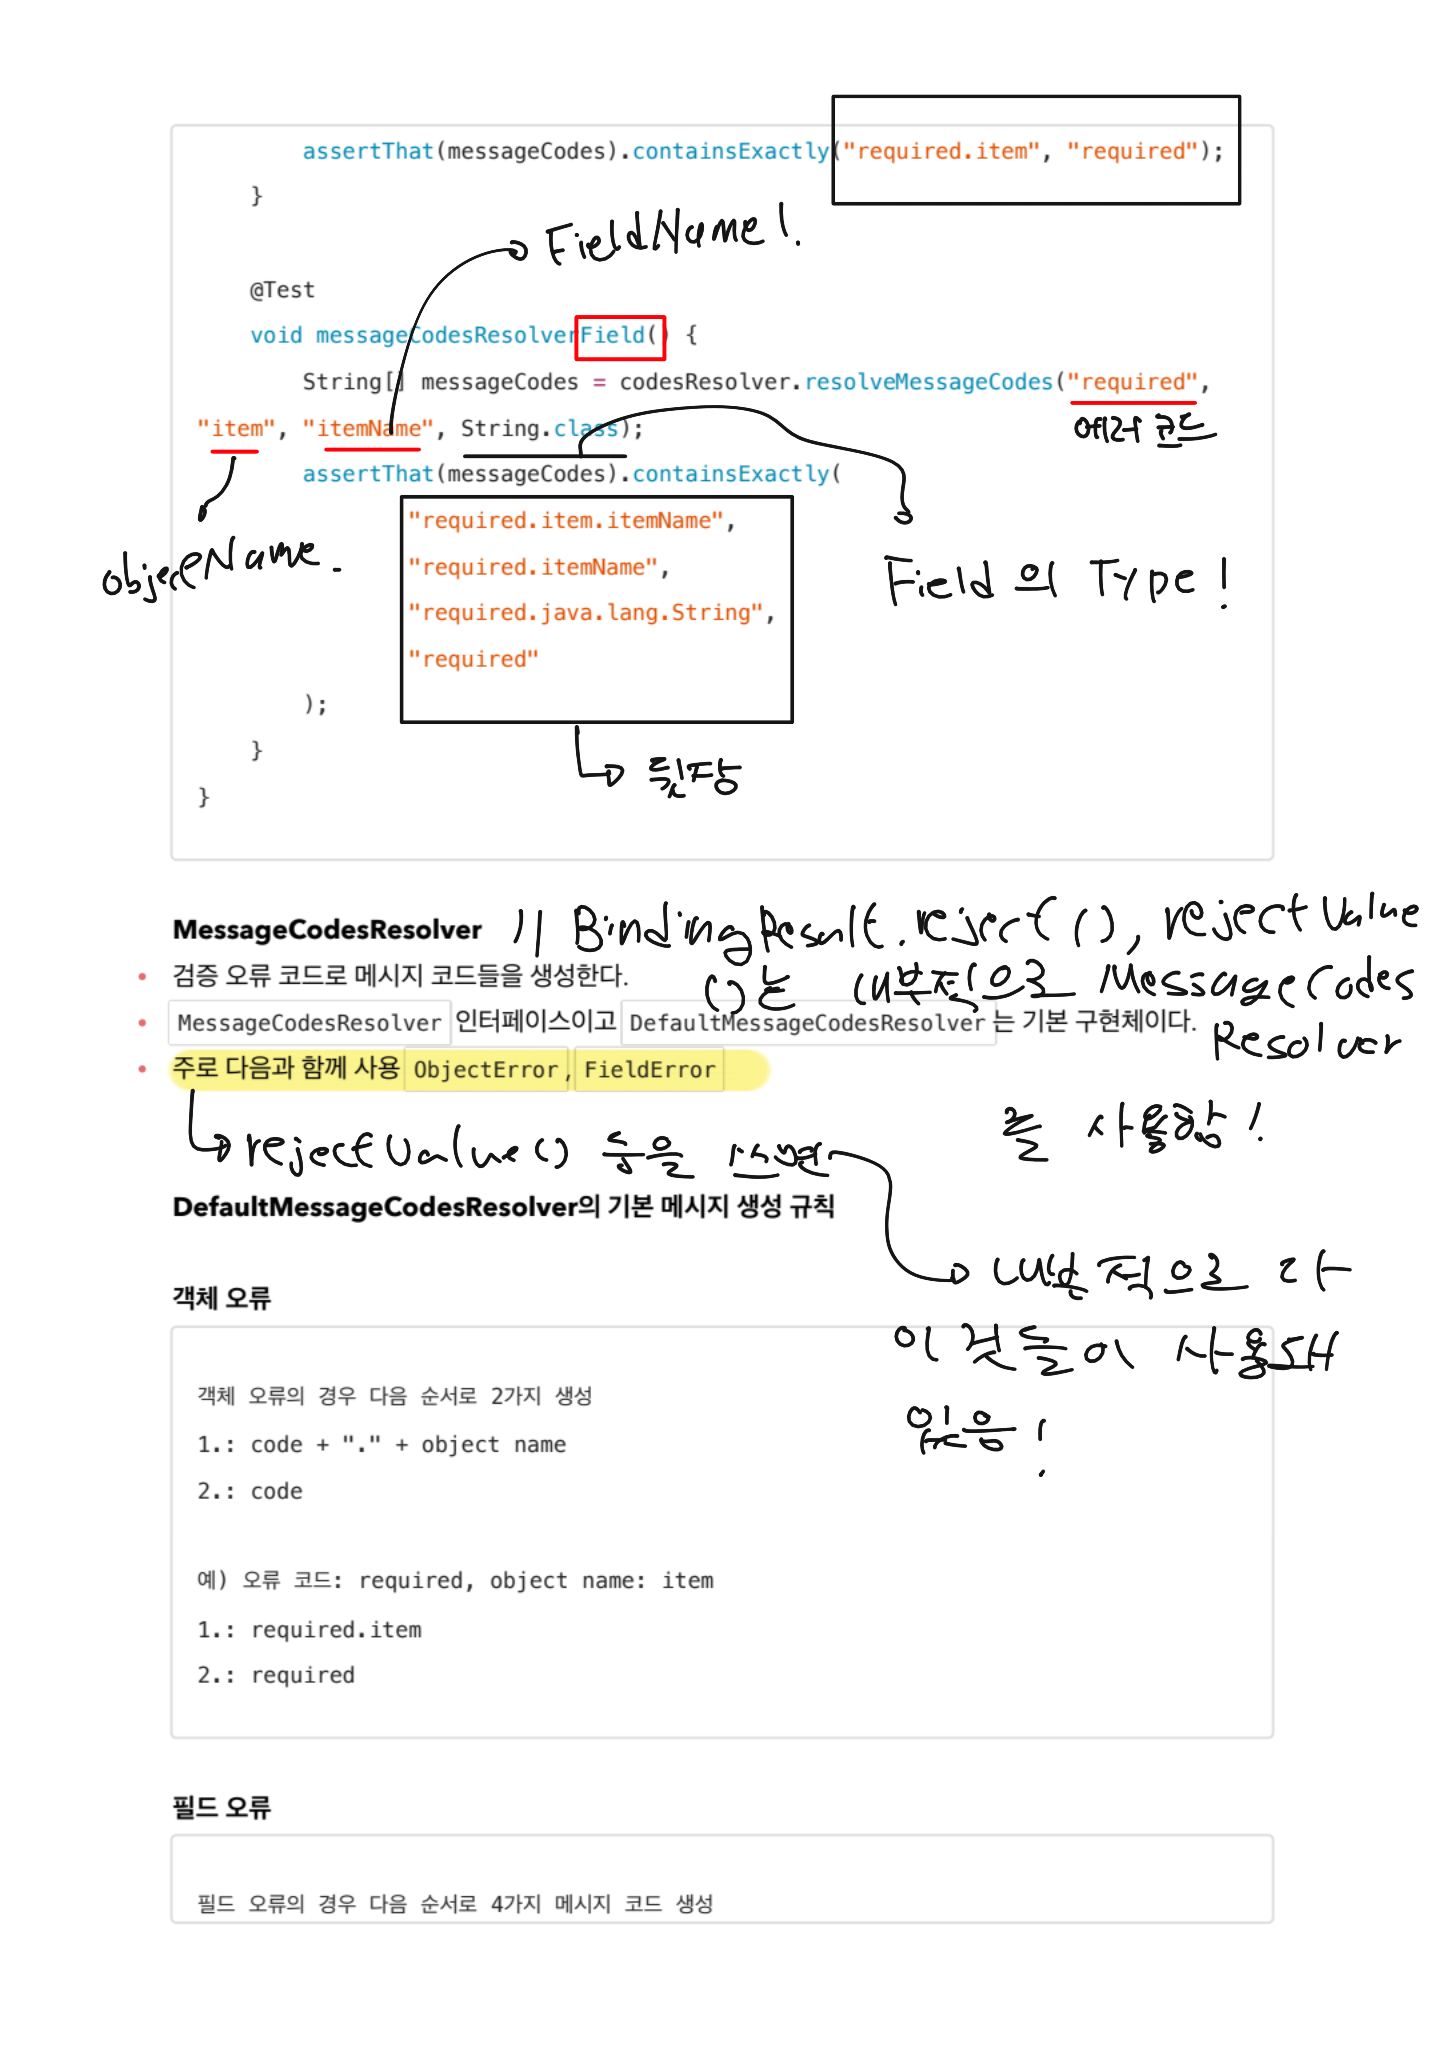 assertThat(messageCodes).containsExactly("required.item", "required");
}
FieldName!
@Test
void messageCodesResolverField() {
String[] messageCodes = codesResolver.resolveMessageCodes("required",
에러 코드
"item", "itemName", String.class);
assertThat(messageCodes).containsExactly(
"required.item.itemName",
objectName.
"required.itemName",
Field의 Type!
"required.java.lang.String",
"required"
);
}
뒷장
}
MessageCodesResolver // BindingResult.reject(), rejectValue
()는 내부적으로 MessageCodes
Resolver
를 사용함!
• 검증 오류 코드로 메시지 코드들을 생성한다.
• MessageCodesResolver 인터페이스이고 DefaultMessageCodesResolver 는 기본 구현체이다.
• 주로 다음과 함께 사용 ObjectError , FieldError
rejectValue() 등을 쓰면
내부적으로 다
이것들이 사용돼
있음!
DefaultMessageCodesResolver의 기본 메시지 생성 규칙
객체 오류
객체 오류의 경우 다음 순서로 2가지 생성
1.: code + "." + object name
2.: code
예) 오류 코드: required, object name: item
1.: required.item
2.: required
필드 오류
필드 오류의 경우 다음 순서로 4가지 메시지 코드 생성